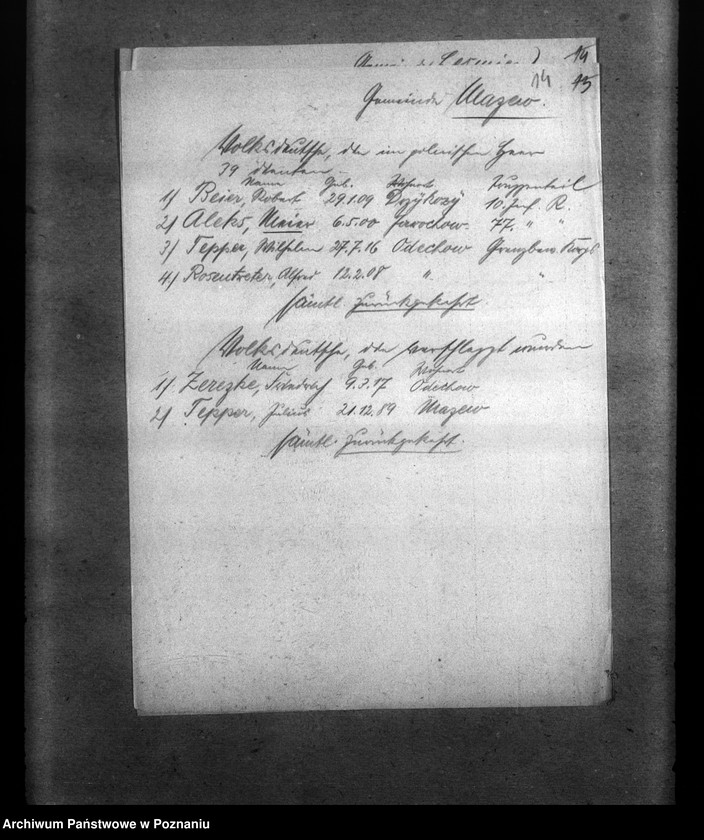 14
14 15
Gemeinde Mazew.
Volksdeutsche, die im polnischen Heer
39 dienten
Name Geb. Wohnort Truppenteil
1) Beier, Robert 29.1.09 10. Inf. R.
2) Aleks, Maier 6.5.00 Jarochow. 77. " "
3) Tepper, Wilhelm 27.7.16 Odechow Grenzbew. Korps
4) Rosentreter, Alfred 12.2.08 " "
sämtl. zurückgekehrt.
Volksdeutsche, die verschleppt wurden
Name Geb. Wohnort
1) Zerezke, Friedrich 9.3.17 Odechow
2) Tepper, Julius 21.12.89 Mazew
sämtl. zurückgekehrt.
Archiwum Państwowe w Poznaniu